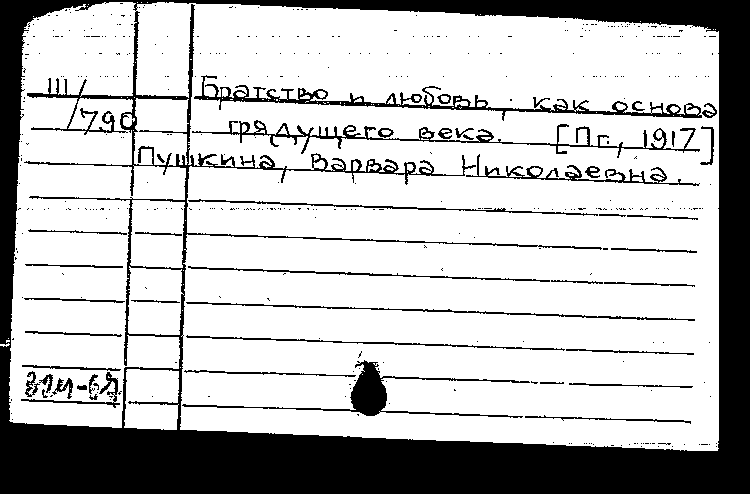 III/790
Братство и любовь, как основа
грядущего века. [Пг., 1917]
Пушкина, Варвара Николаевна.